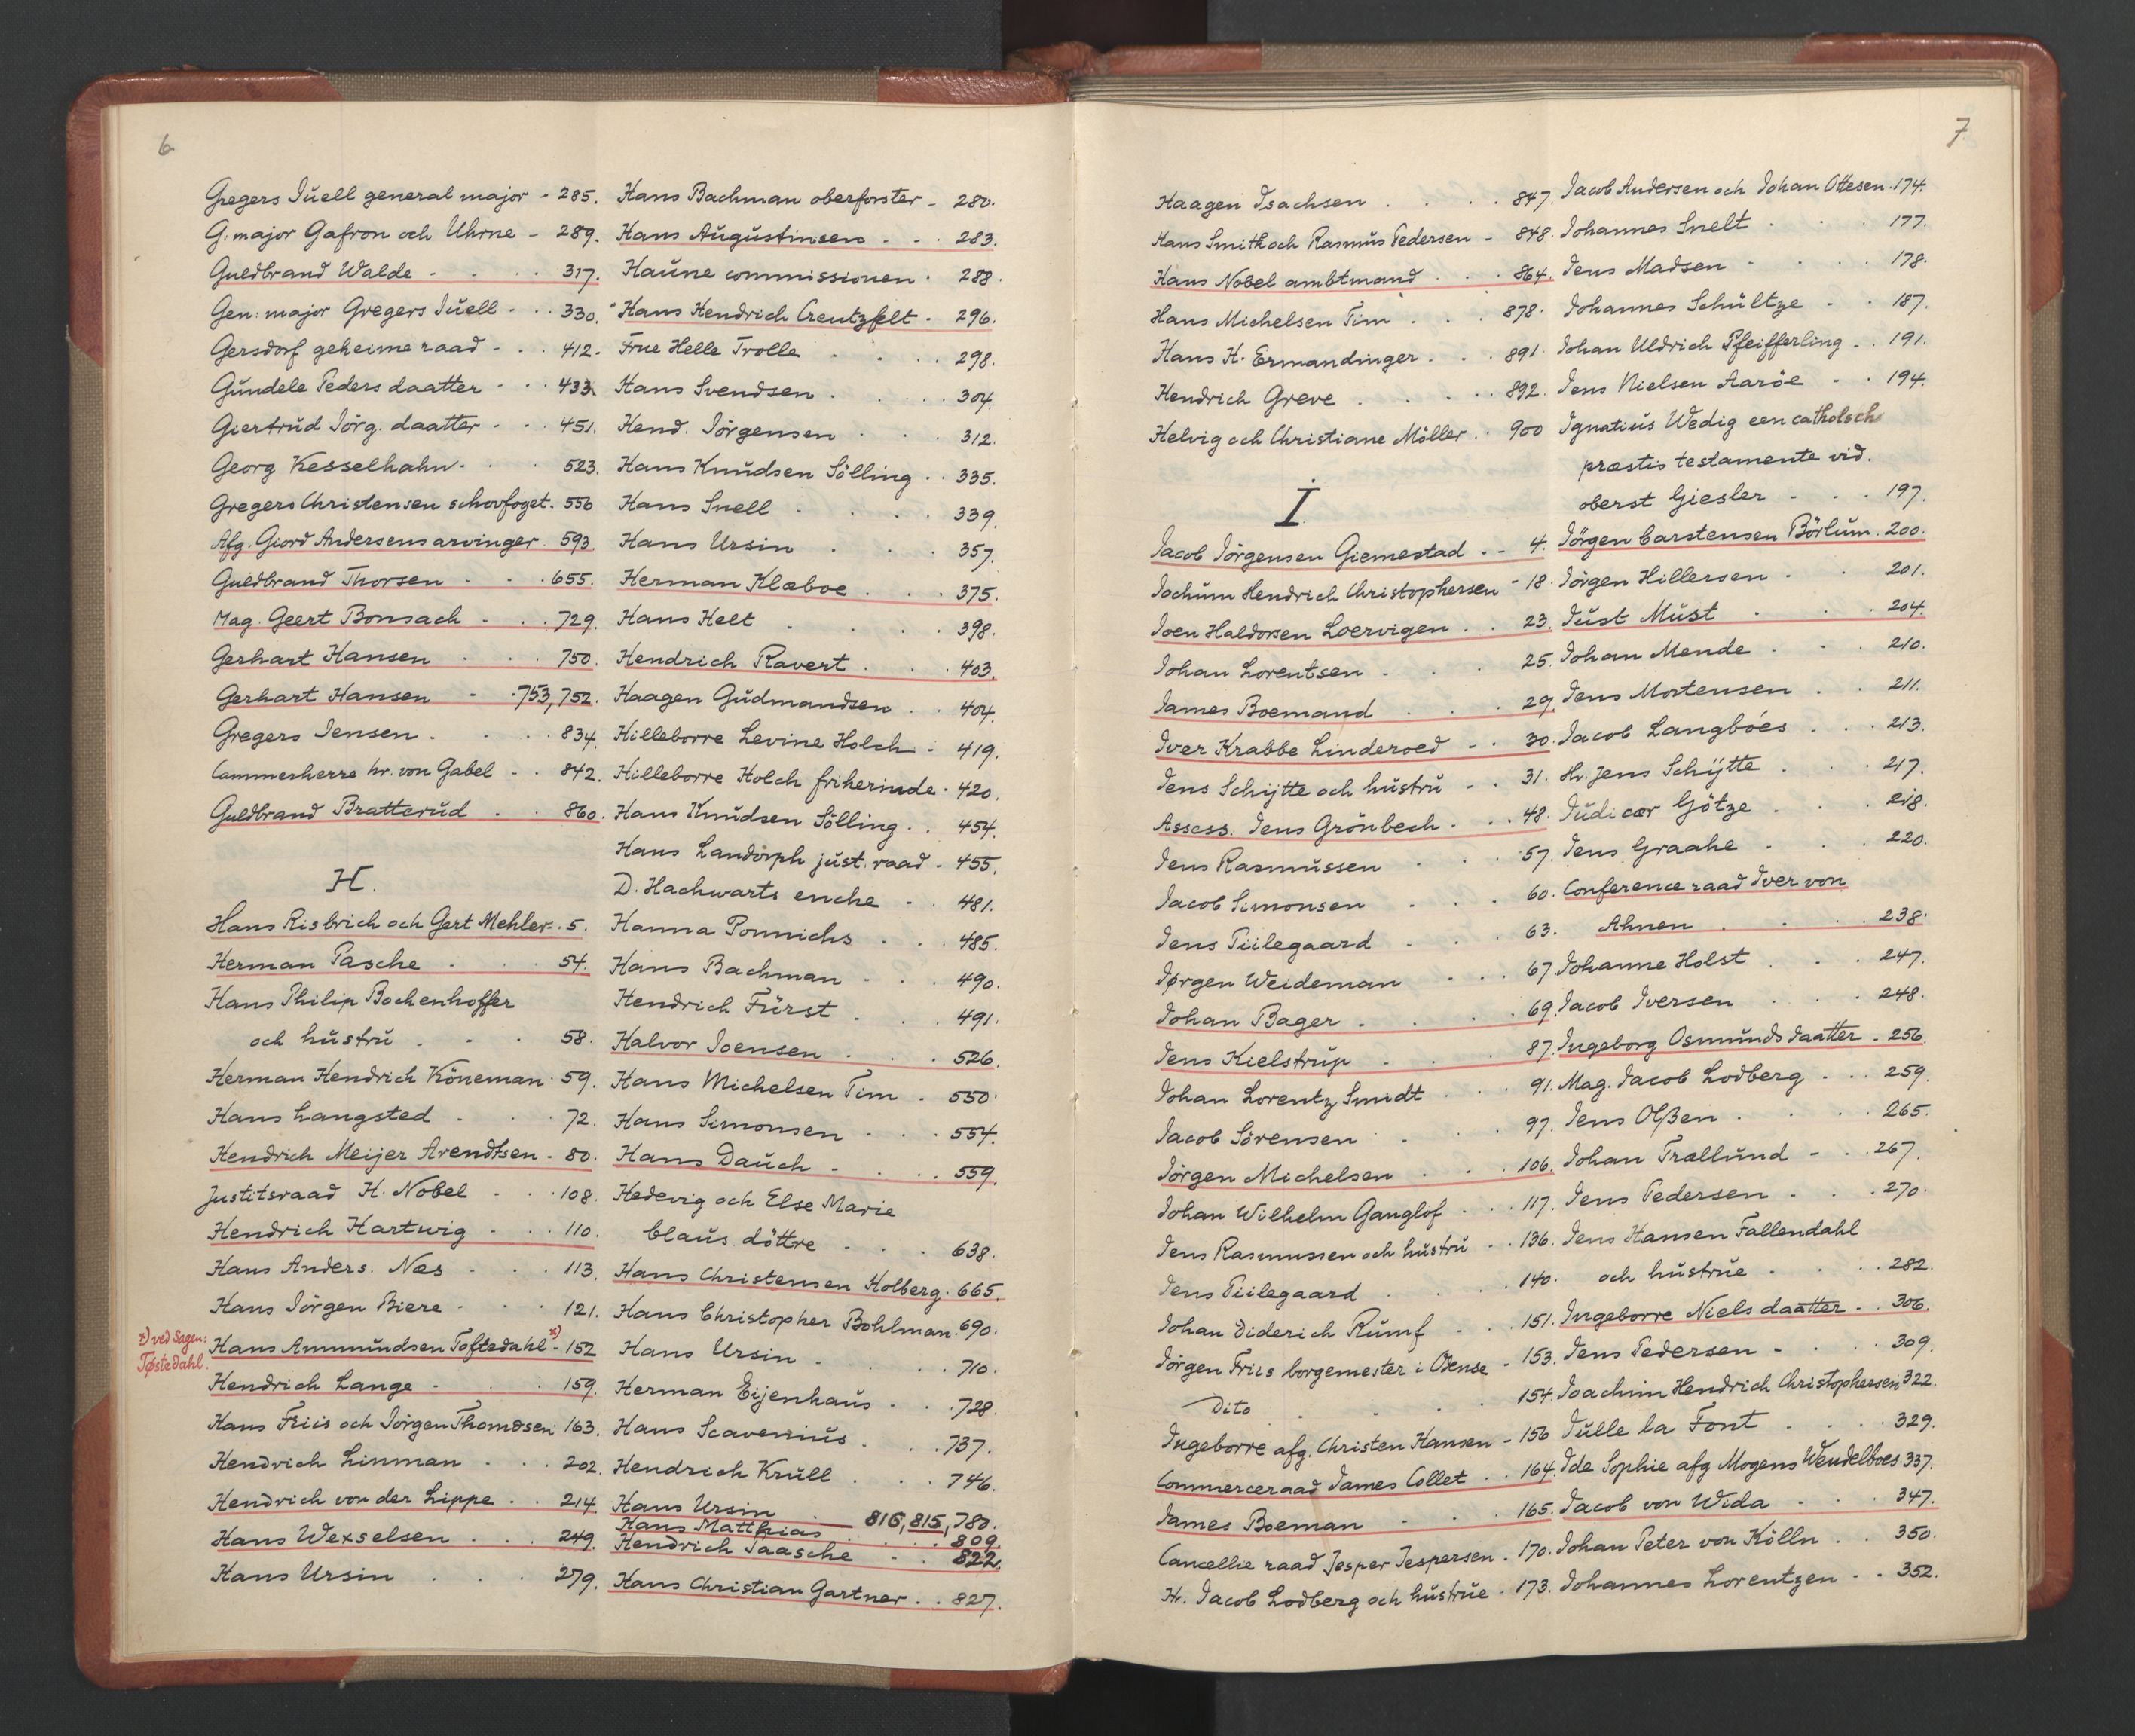 6
Gregers Jŭell general major - 285.
G: major Gafron och Uhrne - 289.
Guldbrand Walde - . . . 317.
Gen: major Gregers Jŭell - . . 330.
Gersdorf geheime raad - . . 412.
Gŭndele Peders daatter - . . 433.
Giertrŭd Jörg. daatter - . . 451.
Georg Kesselhahn . . . 523.
Gregers Christensen schovfoget . 556
Afg. Giord Andersens arvinger . 593
Guldbrand Thorsen - . . . 655.
Mag. Geert Bonsach - . . . 729.
Gerhart Hansen . . . 750.
Gerhart Hansen - . 753, 752.
Gregers Jensen . . . . 834.
Cammerherre hr. von Gabel . . 842.
Guldbrand Bratterŭd . . . 860.
H.
Hans Risbrich och Gert Mehler . . 5.
Herman Pasche . . . 54.
Hans Philip Bochenhoffer
och hŭstrŭ . . . 58.
Herman Hendrich Köneman . 59.
Hans Langsted . . . 72.
Hendrich Meijer Arendtsen . 80.
Justitsraad H. Nobel - . . 108.
Hendrich Hartwig - . . 110.
Hans Anders. Næs . . . 113.
Hans Jörgen Biere - . . . 121.
x) ved sagen:
Tøstedahl.
Hans Ammŭndsen Toftedahl x) - 152
Hendrich Lange - . . . 159.
Hans Friis och Jörgen Thomdsen 163.
Hendrich Linman . . . 202.
Hendrich von der Lippe . . 214
Hans Wexselsen . . . 249.
Hans Ursin . . . 279.
Hans Bachman oberforster - 280.
Hans Aŭgŭstinsen - - . 283.
Haŭne commissionen . 288.
Hans Hendrich Creutzfelt - 296.
Frue Helle Trolle . . . 298.
Hans Svendsen . . . . 304.
Hend. Jörgensen . . . 312.
Hans Knŭdsen Sölling . . 335.
Hans Snell . . . . 339.
Hans Ursin . . . 357.
Herman Klæboe . . . 375.
Hans Helt . . . . 398.
Hendrich Ravert . . . 403.
Haagen Gŭdmandsen . . 404.
Hilleborre Levine Holch . 419.
Hilleborre Holch friherinde . 420.
Hans Knŭdsen Sölling . . 454.
Hans Landorph jŭst. raad - 455.
D. Hachwarts enche . . 481.
Hanna Ponnichs . . . 485.
Hans Bachman . . . 490.
Hendrich Fŭrst . . . 491.
Halvor Joensen . . . 526.
Hans Michelsen Tim . 550.
Hans Simonsen . . . 554.
Hans Daŭch - . . . 559.
Hedevig och Else Marie
Claŭs döttre . . . 638.
Hans Christensen Holberg . 665.
Hans Christopher Bohlman . 690.
Hans Ursin . . . . 710.
Herman Eijenhaŭs . . . 728.
Hans Scavenius . . . 737.
Hendrich Krŭll . . . 746.
Hans Ursin — 816, 815, 780.
Hans Matthias . . . . 809.
Hendrich Paasche . . 822.
Hans Christian Gartner . . 827.
7
Haagen Isachsen . . . . 847.
Hans Smith och Rasmŭs Pedersen - 848.
Hans Nobel ambtmand . . . 864.
Hans Michelsen Tim . . . 878.
Hans H. Ermandinger . . . 891.
Hendrich Greve . . . . 892.
Helvig och Christiane Möller . . 900
I.
Jacob Jörgensen Giemestad . - 4.
Jochŭm Hendrich Christophersen - 18.
Joen Haldorsen Loervigen . . 23.
Johan Lorentsen . . . 25.
James Boemand . . . 29.
Iver Krabbe Linderoed - . 30.
Jens Schijtte och hŭstrŭ - . 31.
Assess. Jens Grönbech . . . 48.
Jens Rasmŭssen . . . 57.
Jacob Simonsen . . . 60.
Jens Piilegaard . . . 63.
Jørgen Weideman . . . 67.
Johan Bager . . . . 69.
Jens Kielstrŭp - . . . 87.
Johan Lorentz Smidt . . . 91.
Jacob Sörensen . . . 97.
Jörgen Michelsen . . . 106.
Johan Wilhelm Ganglof . . . 117.
Jens Rasmussen och hŭstrŭ . . 136.
Jens Piilegaard . . . . 140.
Johan Diderich Rŭmf . . . 151.
Jörgen Friis borgemester i Odense - 153.
Dito . . . . 154.
Ingeborre afg. Christen Hansen - 156
Commerceraad James Collet . . 164.
James Boeman . . . 165.
Cancellie raad Jesper Jespersen . 170.
Hr. Jacob Lodberg och hŭstrŭe . 173.
Jacob Andersen och Johan Ottesen . 174.
Johannes Snelt . . . 177.
Jens Madsen . . . . 178.
Johannes Schŭltze . . 187.
Johan Uldrich Pfeifferling . . 191.
Jens Nielsen Aaröe - . 194.
Ignatiŭs Wedig een catholsch
præstis testamente vid.
oberst Giesler - . . 197.
Jörgen Carstensen Börlŭm . 200.
Jörgen Hillersen . . 201.
Jŭst Mŭst . . . 204.
Johan Mende . . . 210.
Jens Mortensen . . 211.
Jacob Langböes . . . 213.
Hr. Jens Schijtte . . . 217.
Jŭdicær Götze . . . 218.
Jens Graahe - . . 220.
Conference raad Iver von
Ahnen . . . 238.
Johanne Holst . . . 247.
Jacob Iversen . . . 248.
Ingeborg Osmŭnds daatter - 256.
Mag. Jacob Lodberg . . . 259.
Jens Olßen . . . . 265.
Johan Trællŭnd - . . 267.
Jens Pedersen - . . 270.
Jens Hansen Fallendahl
och hŭstrŭe . . . 282.
Ingeborre Niels daatter - . 306.
Jens Pedersen - . . . 309.
Joachim Hendrich Christophersen 322.
Jŭlle la Font - . . . 329.
Ide Sophie afg Mogens Wendelboes . 337.
Jacob von Wida - . . 347.
Johan Peter von Kölln . . 350.
Johannes Lorentzen . . 352.